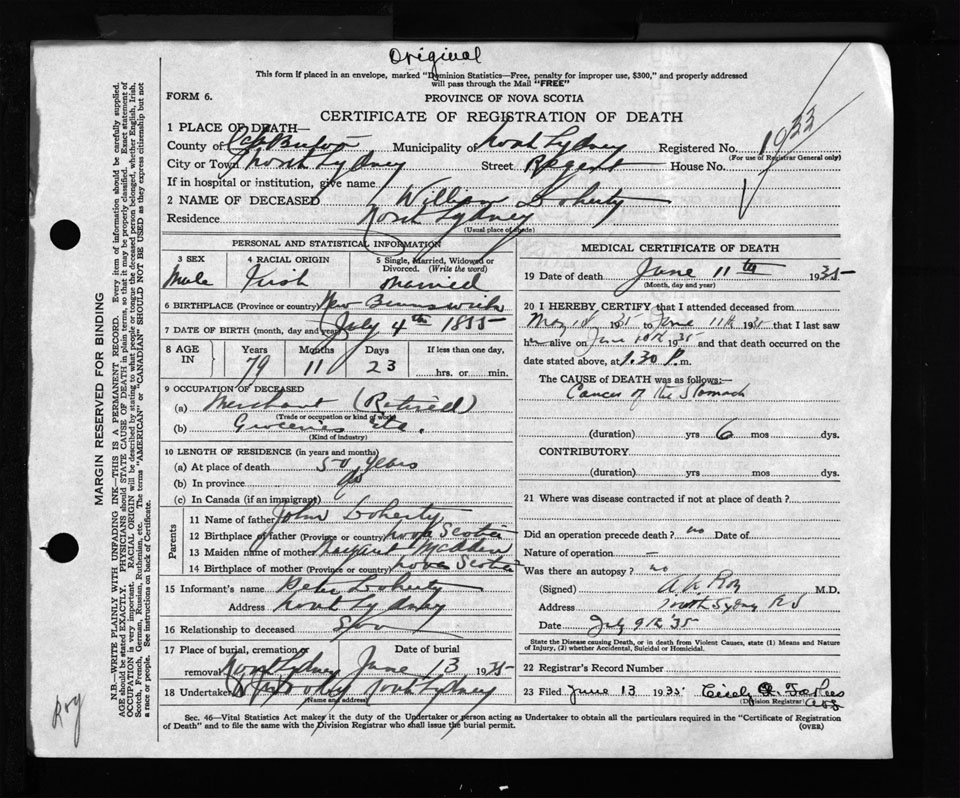 Original
This form if placed in an envelope, marked "Dominion Statistics—Free, penalty for improper use, $300," and properly addressed
will pass through the Mail "FREE"
FORM 6.
PROVINCE OF NOVA SCOTIA
CERTIFICATE OF REGISTRATION OF DEATH
1 PLACE OF DEATH—
County of Municipality of North Sydney Registered No. 1933
(For use of Registrar General only)
City or Town North Sydney Street Regent House No.
If in hospital or institution, give name
2 NAME OF DECEASED William Doherty
Residence North Sydney
(Usual place of abode)
PERSONAL AND STATISTICAL INFORMATION
3 SEX 4 RACIAL ORIGIN 5 Single, Married, Widowed or Divorced. (Write the word)
Male Irish Married
6 BIRTHPLACE (Province or country) New Brunswick
7 DATE OF BIRTH (month, day and year) July 4th 1855
8 AGE IN Years Months Days If less than one day,
79 11 23 hrs. or min.
9 OCCUPATION OF DECEASED
(a) Merchant (Retired)
(Trade or occupation or kind of work)
(b) Groceries etc.
(Kind of industry)
10 LENGTH OF RESIDENCE (in years and months)
(a) At place of death 50 years
(b) In province do
(c) In Canada (if an immigrant)
Parents
11 Name of father John Doherty
12 Birthplace of father (Province or country) Nova Scotia
13 Maiden name of mother Margaret
14 Birthplace of mother (Province or country) Nova Scotia
15 Informant's name Peter Doherty
Address North Sydney
16 Relationship to deceased Son
17 Place of burial, cremation or removal Date of burial
North Sydney June 13 1935
18 Undertaker North Sydney
(Name and address)
MEDICAL CERTIFICATE OF DEATH
19 Date of death June 11th 1935
(Month, day and year)
20 I HEREBY CERTIFY that I attended deceased from
May 1935 to June 11th 1935 that I last saw
him alive on June 10th 1935 and that death occurred on the
date stated above, at 1.30 P.m.
The CAUSE OF DEATH was as follows:—
Cancer of the Stomach
(duration) yrs 6 mos dys.
CONTRIBUTORY
(duration) yrs mos dys.
21 Where was disease contracted if not at place of death?
Did an operation precede death? no Date of
Nature of operation —
Was there an autopsy? no
(Signed) Roy M.D.
Address North Sydney N S
Date July 9th '35
State the Disease causing Death, or in death from Violent Causes, state (1) Means and Nature
of Injury, (2) whether Accidental, Suicidal or Homicidal.
22 Registrar's Record Number
23 Filed June 13 1935
(Division Registrar)
Sec. 46—Vital Statistics Act makes it the duty of the Undertaker or person acting as Undertaker to obtain all the particulars required in the "Certificate of Registration
of Death" and to file the same with the Division Registrar who shall issue the burial permit. (OVER)
MARGIN RESERVED FOR BINDING
N.B.—WRITE PLAINLY WITH UNFADING INK—THIS IS A PERMANENT RECORD. Every item of information should be carefully supplied.
AGE should be stated EXACTLY. PHYSICIANS should STATE CAUSE OF DEATH in plain terms, so that it may be properly classified. Exact statement of
OCCUPATION is very important. RACIAL ORIGIN will be described by stating to what people or tongue the deceased person belonged, whether English, Irish,
Scotch, French, German, Russian, Ruthenian, etc. The terms "AMERICAN" or "CANADIAN" SHOULD NOT BE USED as they express citizenship but not
a race or people. See instructions on back of Certificate.
Roy